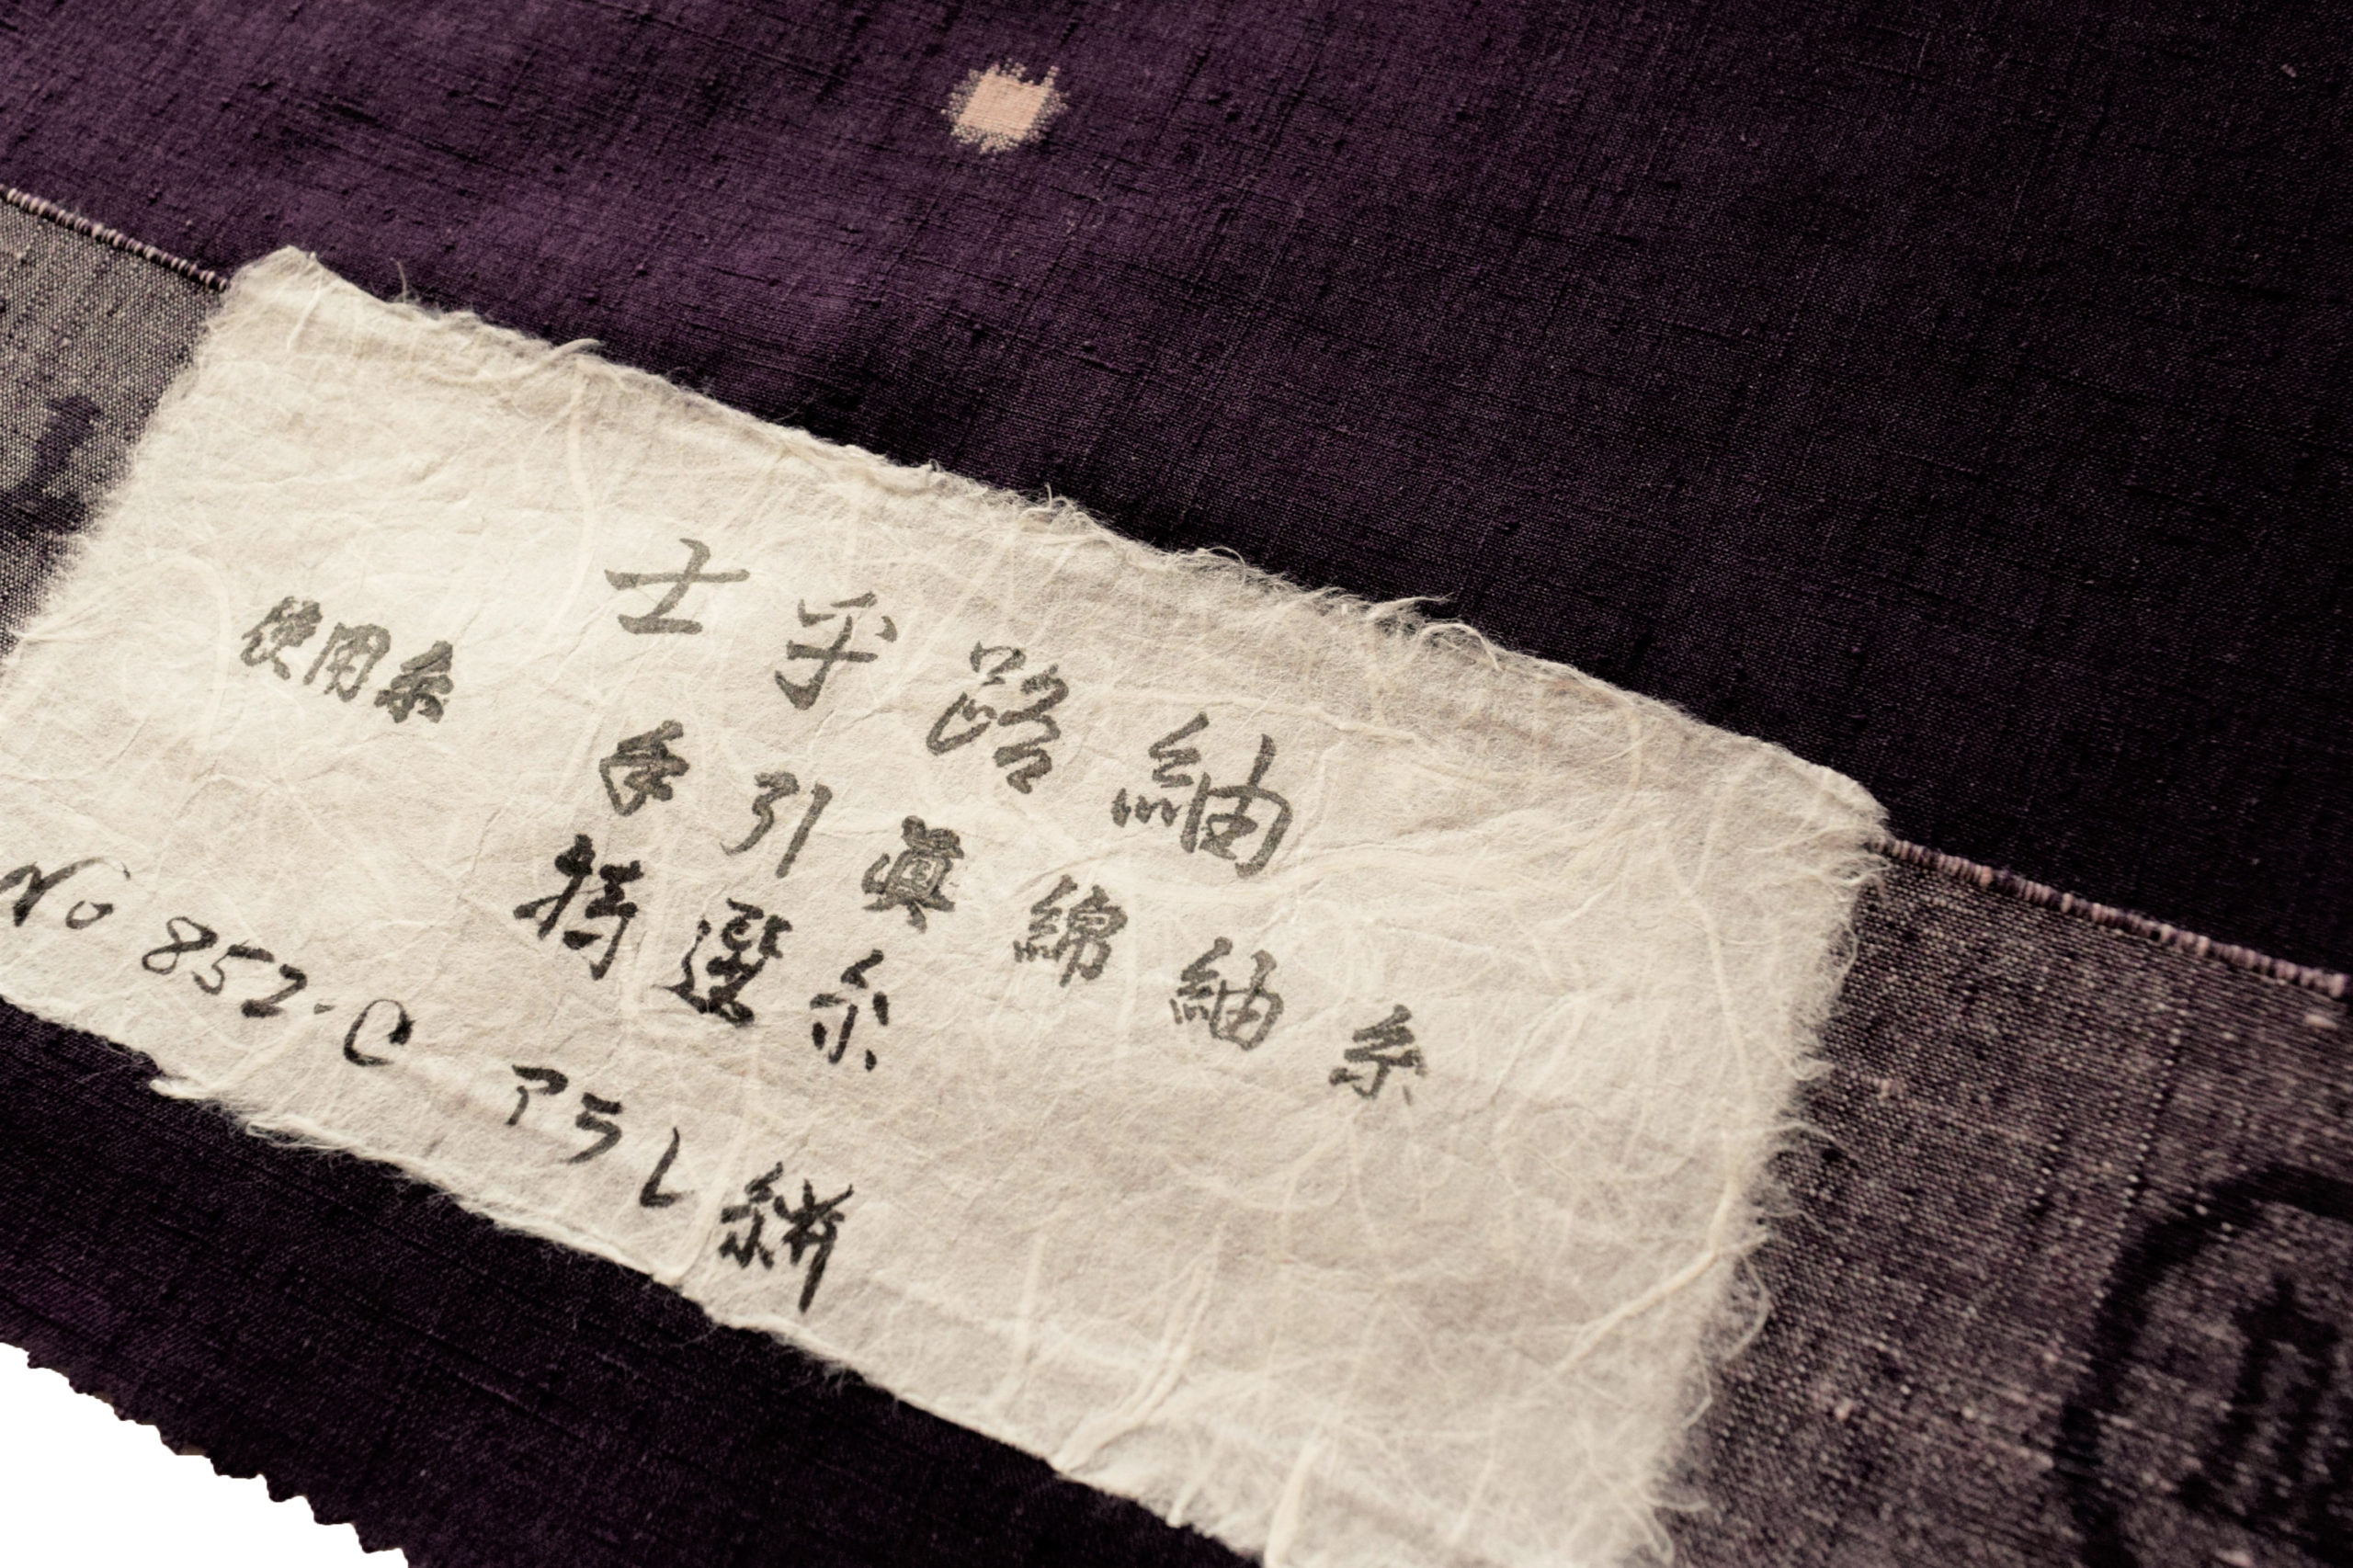 士乎路紬
使用糸 手引真綿紬糸
特選糸
No 852-C アラレ絣